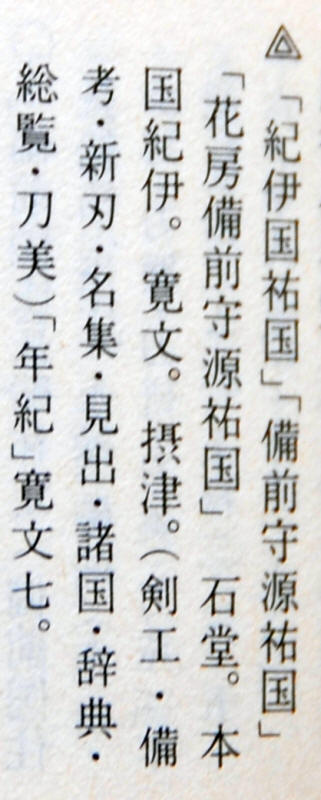 ◬「紀伊国祐国」「備前守源祐国」
「花房備前守源祐国」　石堂。本
国紀伊。寛文。摂津。(剣工・備
考・新刃・名集・見出・諸国・辞典・
総覧・刀美)「年紀」寛文七。